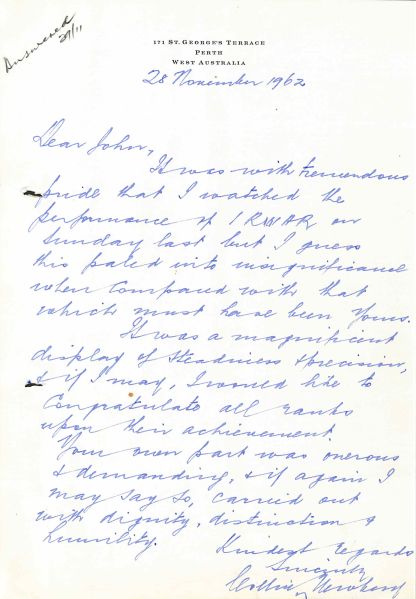 Answered
29/11
171 St. George's Terrace
Perth
West Australia
28 November 1962
Dear John,
It was with tremendous
pride that I watched the
performance of 1 RWAR on
Sunday last but I guess
this paled into insignificance
when compared with that
which must have been yours.
It was a magnificent
display of steadiness & precision,
& if I may, I would like to
congratulate all ranks
upon their achievement.
Your own part was onerous
& demanding, & if again I
may say so, carried out
with dignity, distinction &
humility.
Kindest regards
Sincerely